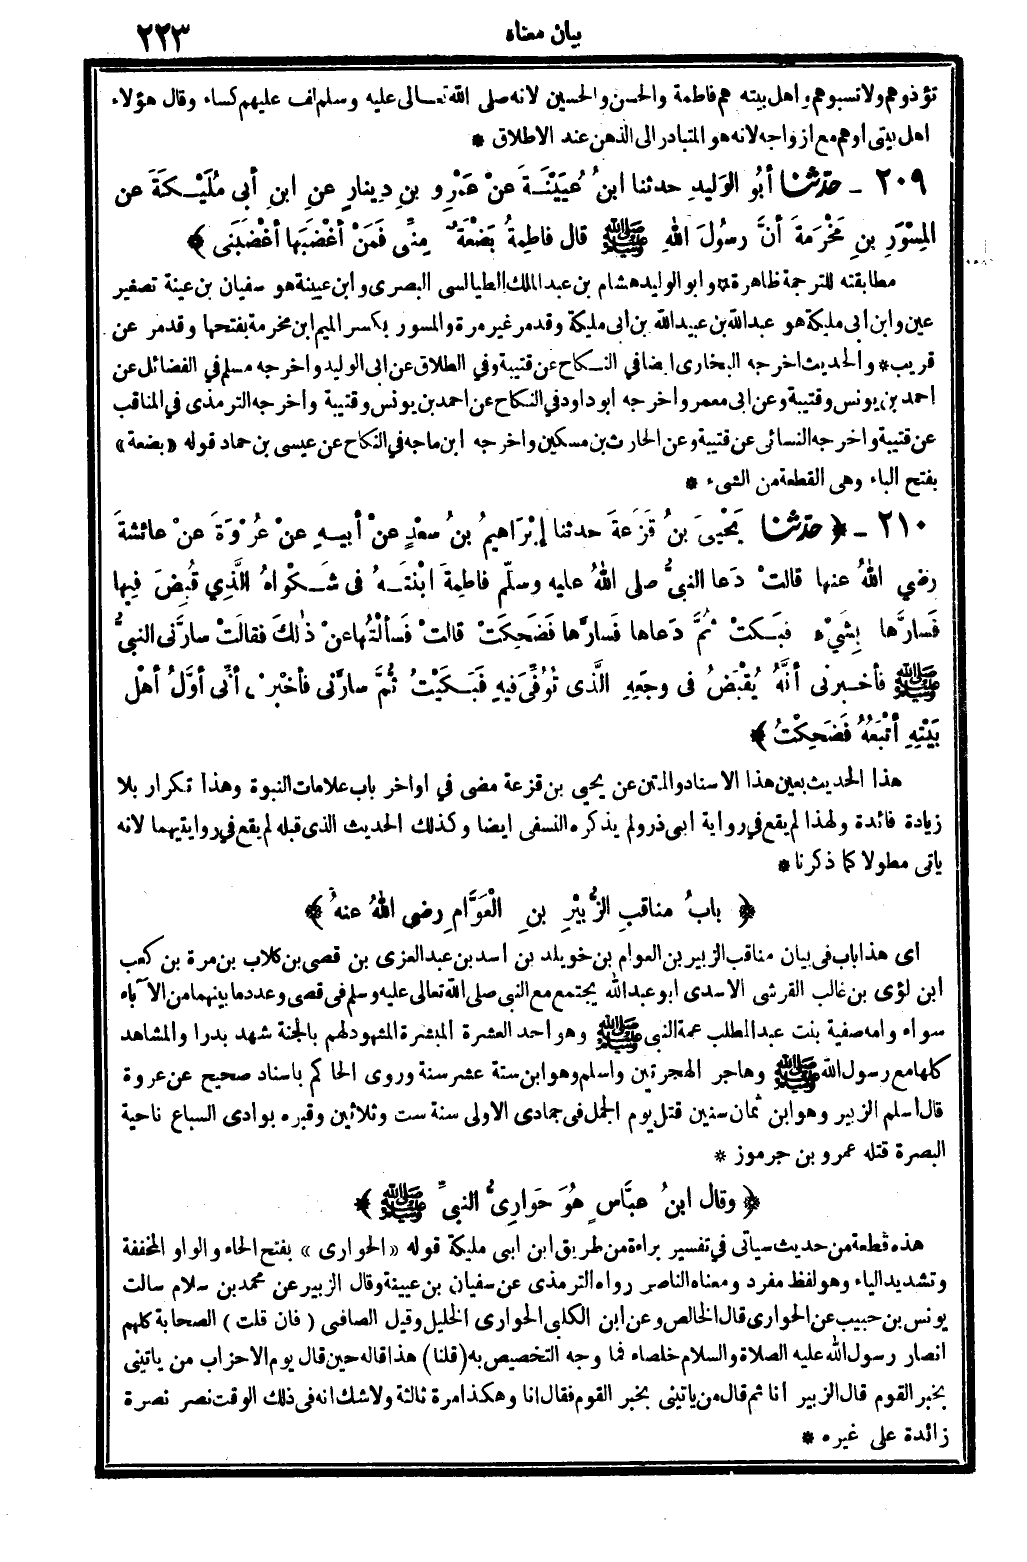 بيان معناه ٢٢٣
تؤذوهم ولا تسبوهم واهل بيته هم فاطمة والحسن والحسين لانه صلى الله تعالى عليه وسلم لف عليهم كساء وقال هؤلاء
اهل بيتى او هم مع ازواجه لانه هو المتبادر الى الذهن عند الاطلاق *
٢٠٩ - حدّثنا أبُو الوَليدِ حدثنا ابنُ عُيَيْنَةَ عنْ عَمْرِو بنِ دِينارٍ عنِ ابنِ أبى مُلَيْكَةَ عن
المِسْوَرِ بنِ مَخْرَمةَ أنَّ رسُولَ اللهِ ﷺ قال فاطِمةُ بَضْعَةٌ مِنِّى فَمَنْ أغْضَبَها أغْضَبَنى ﴾
مطابقته للترجمة ظاهرة * وابو الوليد هشام بن عبد الملك الطيالسى البصرى وابن عيينة هو سفيان بن عينة تصغير
عين وابن ابى مليكة هو عبدالله بن عبيدالله بن ابى مليكة وقد مر غير مرة والمسور بكسر الميم ابن مخرمة بفتحها وقد مر عن
قريب * والحديث اخرجه البخارى ايضا في النكاح عن قتيبة وفي الطلاق عن ابى الوليد واخرجه مسلم في الفضائل عن
احمد بن يونس وقتيبة وعن ابى معمر واخرجه ابو داود في النكاح عن احمد بن يونس وقتيبة واخرجه الترمذى في المناقب
عن قتيبة واخرجه النسائى عن قتيبة وعن الحارث بن مسكين واخرجه ابن ماجه في النكاح عن عيسى بن حماد قوله «بضعة»
بفتح الباء وهى القطعة من الشىء *
٢١٠ - ﴿ حدّثنا يَحْيىَ بنُ قَزَعةَ حدثنا إبْرَاهيمُ بنُ سعْدٍ عنْ أبيهِ عنْ عُرْوَةَ عنْ عائشةَ
رضي اللهُ عنها قالتْ دَعا النبىُّ صلى اللهُ عليه وسلّم فاطِمةَ ابْنتَهُ فى شَكْواهُ الَّذِي قُبِضَ فِيها
فَسارَّها بِشَىْءٍ فبَكتْ ثُمَّ دَعاها فَسارَّها فَضَحِكَتْ قالتْ فَسألْتُها عنْ ذٰلكَ فقالَتْ سارَّنى النبىُّ
ﷺ فأخبرنى أنَّهُ يُقْبَضُ فى وجَعِهِ الَّذى تُوُفِّىَ فيهِ فَبَكَيْتُ ثُمَّ سارَّنى فأخْبرَنى أنِّى أوَّلُ أهْلِ
بَيْتِهِ أتْبَعُهُ فَضَحِكْتُ ﴾
هذا الحديث بعين هذا الاسناد والمتن عن يحيى بن قزعة مضى في اواخر باب علامات النبوة وهذا تكرار بلا
زيادة فائدة ولهذا لم يقع في رواية ابى ذر ولم يذكره النسفى ايضا وكذلك الحديث الذى قبله لم يقع في روايتيهما لانه
ياتى مطولا كما ذكرنا *
﴿ بابُ مناقبِ الزُّبيْرِ بنِ العَوَّامِ رضى اللهُ عنهُ ﴾
اى هذا باب فى بيان مناقب الزبير بن العوام بن خويلد بن اسد بن عبد العزى بن قصى بن كلاب بن مرة بن كعب
ابن لؤى بن غالب القرشى الاسدى ابو عبدالله يجتمع مع النبى صلى الله تعالى عليه وسلم فى قصى وعدد ما بينهما من الآباء
سواء وامه صفية بنت عبد المطلب عمة النبى ﷺ وهو احد العشرة المبشرة المشهود لهم بالجنة شهد بدرا والمشاهد
كلها مع رسول الله ﷺ وهاجر الهجرتين واسلم وهو ابن ستة عشر سنة وروى الحاكم باسناد صحيح عن عروة
قال أسلم الزبير وهو ابن ثمان سنين قتل يوم الجمل فى جمادى الاولى سنة ست وثلاثين وقبره بوادى السباع ناحية
البصرة قتله عمرو بن جرموز *
﴿ وقال ابنُ عبَّاسٍ هُوَ حَوارِىُّ النبىِّ ﷺ ﴾
هذه قطعة من حديث سياتى في تفسير براءة من طريق ابن ابى مليكة قوله «الحوارى» بفتح الحاء والواو المخففة
وتشديد الياء وهو لفظ مفرد ومعناه الناصر رواه الترمذى عن سفيان بن عيينة وقال الزبير عن محمد بن سلام سالت
يونس بن حبيب عن الحوارى قال الخالص وعن ابن الكلبى الحوارى الخليل وقيل الصافى ( فان قلت ) الصحابة كلهم
انصار رسول الله عليه الصلاة والسلام خلصاء فما وجه التخصيص به (قلنا) هذا قاله حين قال يوم الاحزاب من ياتينى
بخبر القوم قال الزبير أنا ثم قال من ياتينى بخبر القوم فقال انا وهكذا مرة ثالثة ولا شك انه فى ذلك الوقت نصر نصرة
زائدة على غيره *